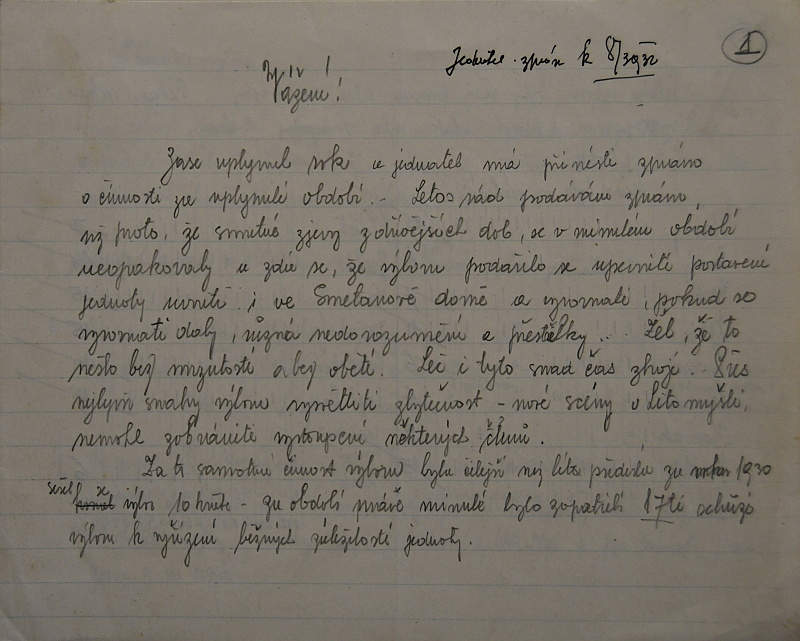 1
Jednatel. zpráva k 8/3 1932
Vážení!
Zase uplynul rok a jednatel má přinésti zprávu
o činnosti za uplynulé období. - Letos rád podávám zprávu,
už proto, že smutné zjevy z dřívějších dob, se v minulém období
neopakovaly a zdá se, že výboru podařilo se upevniti postavení
jednoty uvnitř i ve Smetanově domě a vyrovnati, pokud se
vyrovnati daly, různá nedorozumění a přestřelky... Žel, že to
nešlo bez mrzutostí a bez obětí. Leč i tyto snad čas zhojí. - Přes
nejlepší snahy výboru vysvětliti zbytečnost - nové scény v Litomyšli,
nemohl zabrániti vystoupení některých členů.
Za to samotná činnost výboru byla čilejší než léta předešlá za 1930
sešel se výbor 10 kráte - za období právě minulé bylo zapotřebí 17ti schůzí
výboru k vyřízení běžných záležitostí jednoty.